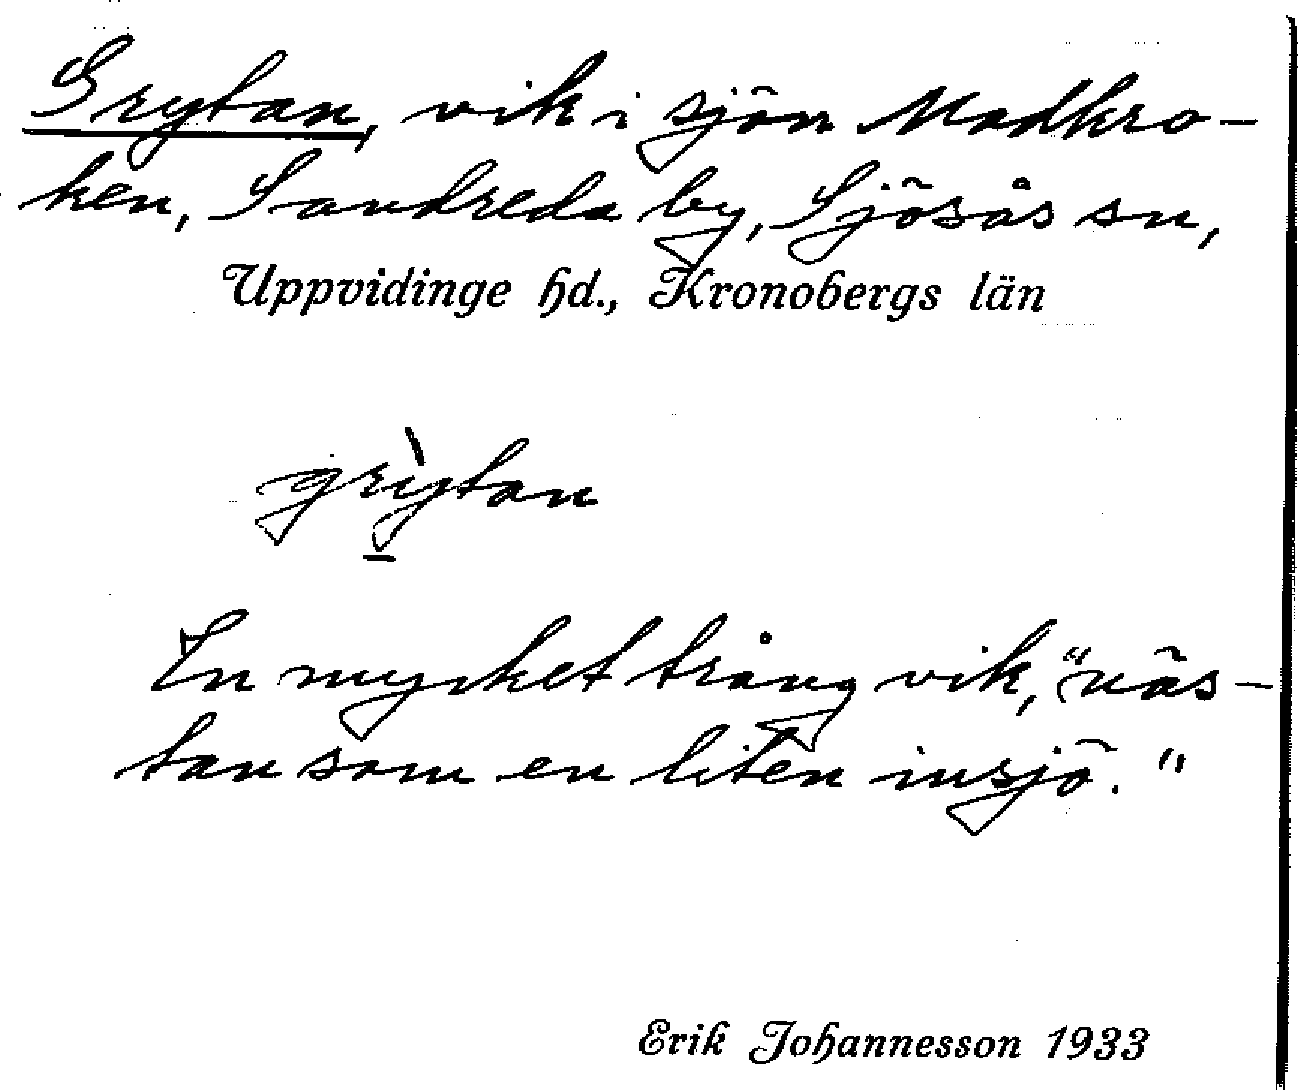 Grytan, vik i sjön Madkro-
ken, Sandreda by, Sjösås sn,
Uppvidinge hd., Kronobergs län
grỳtan
En mycket trång vik, "näs-
tan som en liten insjö."
Erik Johannesson 1933